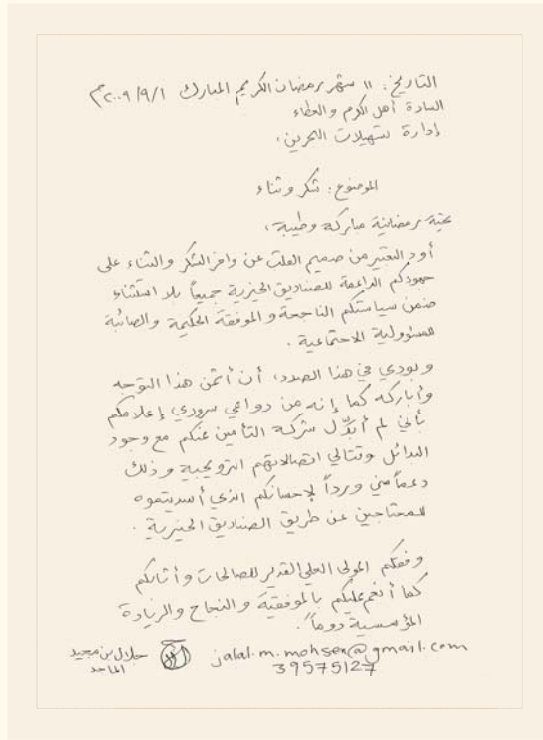 التاريخ: ١١ شهر رمضان الكريم المبارك ٢٠٠٩/٩/١م
السادة أهل الكرم والعطاء
إدارة تسهيلات البحرين،
الموضوع: شكر وثناء
تحية رمضانية مباركة وطيبة،
أود التعبير من صميم القلب عن وافر الشكر والثناء على
جهودكم الداعمة للصناديق الخيرية جميعاً بلا استثناء
ضمن سياستكم الناجحة والموفقة الحكيمة والصائبة
للمسؤولية الاجتماعية.
وبودي في هذا الصدد، أن أثمن هذا التوجه
وأباركه كما إنه من دواعي سروري إعلامكم
بأني لم أبدّل شركة التأمين عنكم مع وجود
البدائل وتتالي اتصالاتهم الترويجية وذلك
دعماً مني ورداً لإحسانكم الذي أسديتموه
للمحتاجين عن طريق الصناديق الخيرية.
وفقكم المولى العلي القدير للصالحات وأثابكم
كما أنعم عليكم بالموفقية والنجاح والريادة
المؤسسية دوماً.
jalal.m.mohsen@gmail.com جلال بن مجيد
39575127